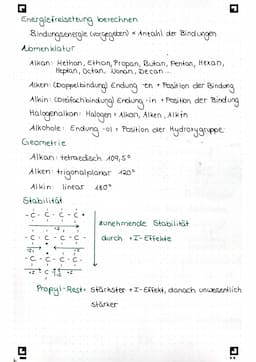 Energiefreisetzung berechnen
Bindungsenergie (vorgegeben) × Anzahl der Bindungen
Nomenklatur
Alkan: Methan, Ethan, Propan, Butan, Pentan, Hexan,
Heptan, Octan, Nonan, Decan...
Alken: (Doppelbindung) Endung -en + Position der Bindung
Alkin: (Dreifachbindung) Endung -in + Position der Bindung
Halogenalkan: Halogen + Alkan, Alken, Alkin
Alkohole: Endung -ol + Position der Hydroxygruppe
Geometrie
Alkan: tetraedisch 109,5°
Alken: trigonalplanar 120°
Alkin: linear 180°
Stabilität
-C-C-C-C+
zunehmende Stabilität
-C-C-C-C-
durch +I-Effekte
-C-C-C-C-
Propyl-Rest: Stärkster +I-Effekt, danach unwesentlich
stärker